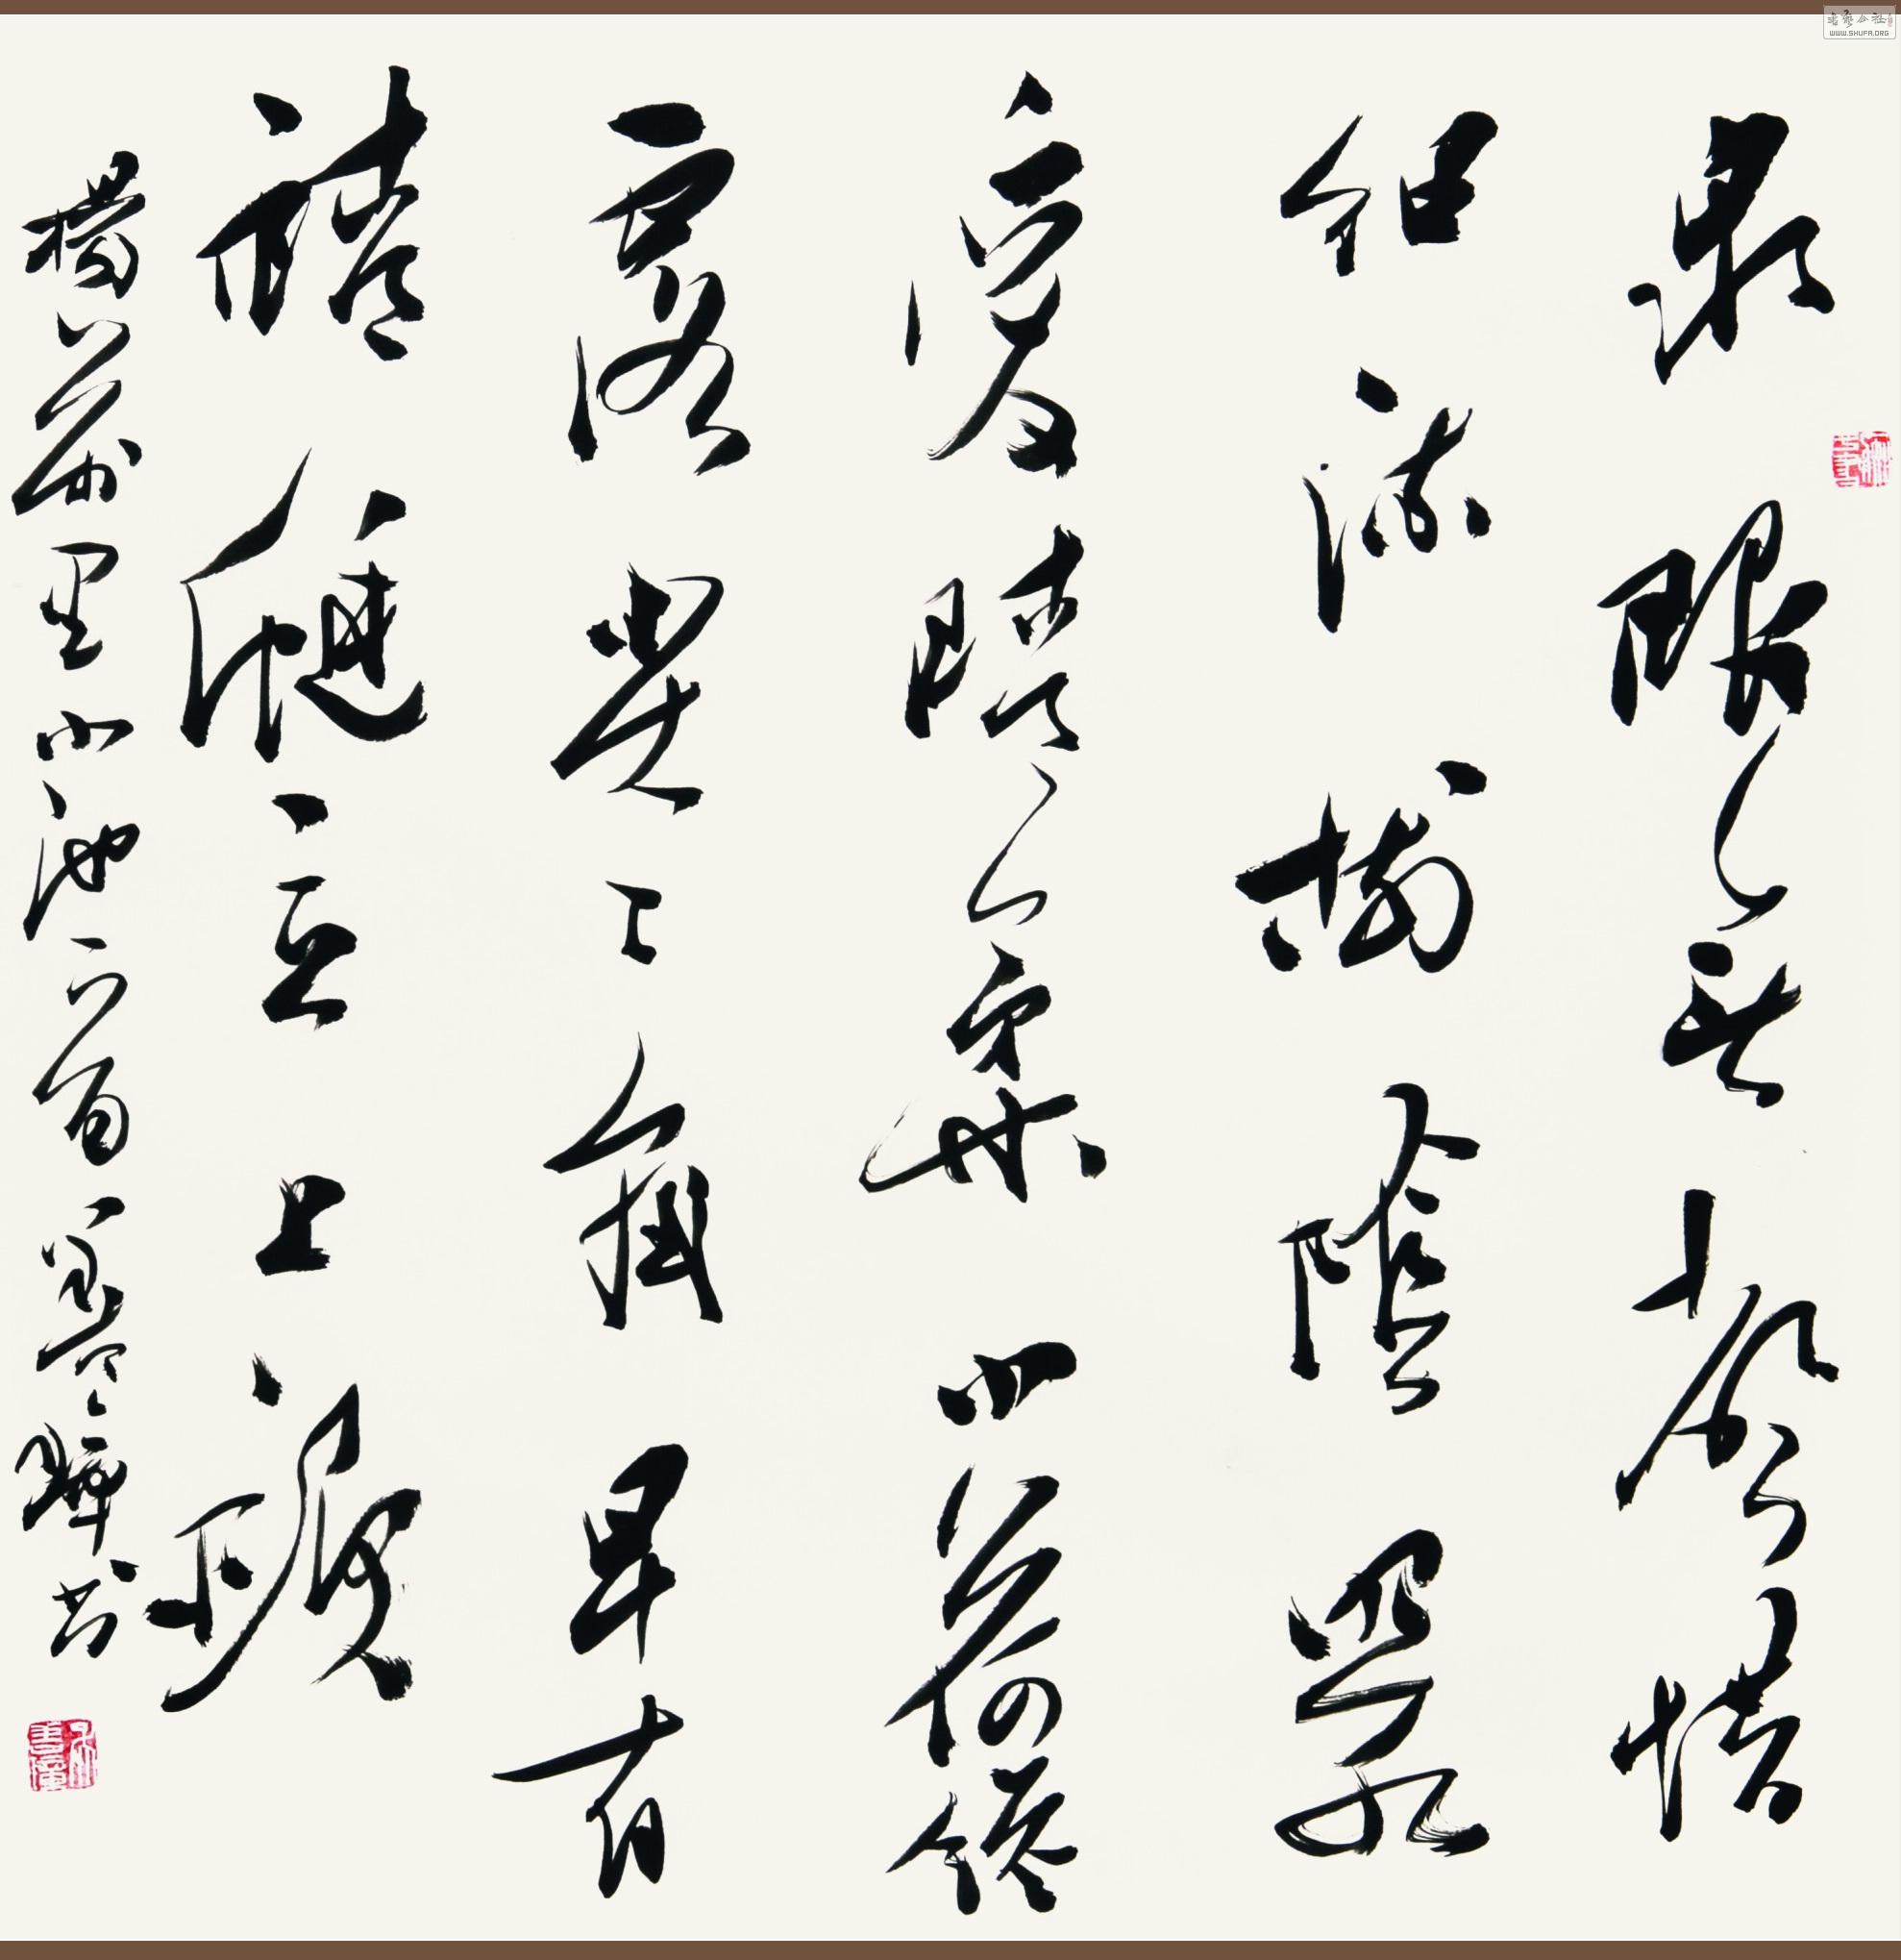 书艺公社
WWW.SHUFA.ORG
泉眼無聲惜
細流樹陰照水
愛晴柔小荷纔
露尖々角早有
蜻蜓立上頭
楊萬里小池一首 書